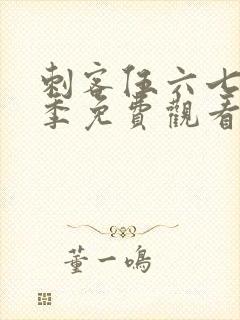 刺客伍六七
季免費觀看
董一鳴